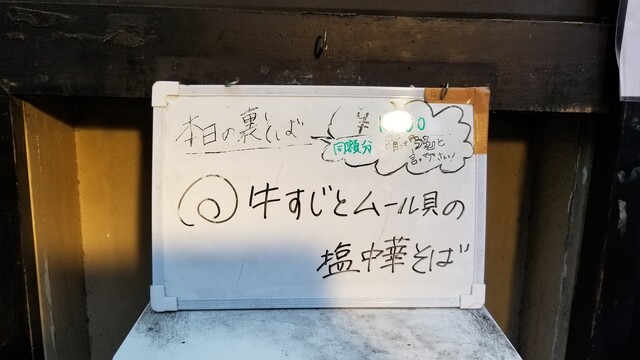 本日の裏そば
同額分
と
言って下さい!
牛すじとムール貝の
塩中華そば